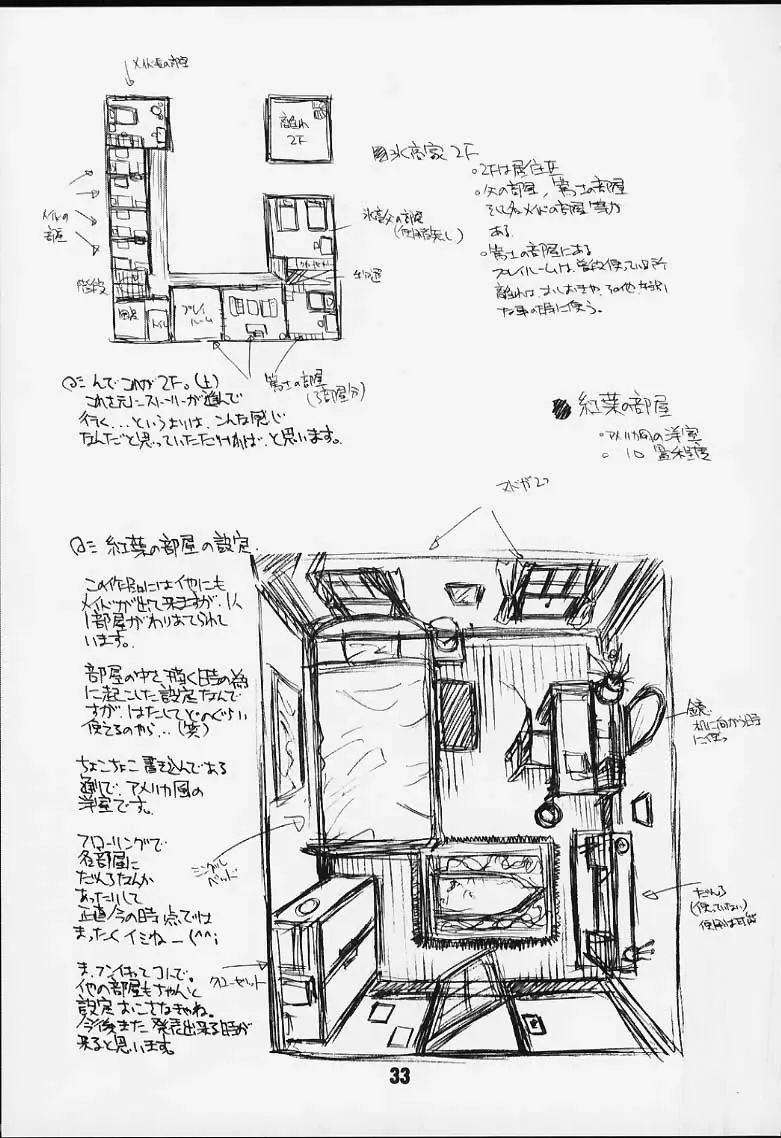 メイド長の部屋
離れ
2F
メイドの
部屋
階段
トイレ
プレイ
ルーム
2Fは居住区
そして各メイドの部屋等が
ある。
の部屋にある
プレイルームは普段使っている所
離れは、おしおきや、その他、特別
な事の時に使う。
の部屋
(3部屋分)
んでこれが2F。(上)
これを元にストーリーが進んで
行く...というよりは、こんな感じ
なんだと思っていただければ、と思います。
紅葉の部屋
アメリカ風の洋室
10畳程度
マドが2つ
紅葉の部屋の設定
この作品には他にも
メイドが出て来ますが、1人
1部屋がわりあてられて
います。
部屋の中を描く時の為
に起こした設定なんで
すが、はたしてどのぐらい
使えるのやら...(笑)
ちょこちょこ書き込んである
通りで、アメリカ風の
洋室です。
フローリングで
各部屋に
だんろなんか
あったりして
正直今の時点では
まったくイミねー(^^;
ま、フンイキってコトで。
他の部屋もちゃんと
設定おこさなきゃね。
今後また発表出来る時が
来ると思います。
鏡。
机に向かう時
に使う
シングル
ベッド
クローゼット
だんろ
(使っていない)
使用は可能
33